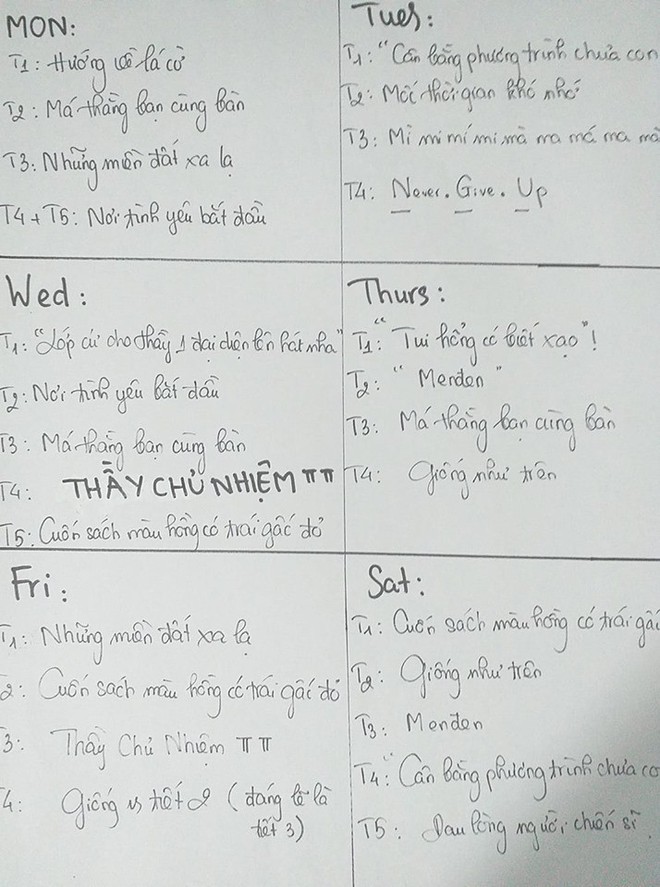 MON:
T1: Hướng về lá cờ
T2: Má thằng bạn cùng bàn
T3: Những miền đất xa lạ
T4 + T5: Nơi tình yêu bắt đầu
Tues:
T1: "Cân bằng phương trình chưa con
T2: Mốc thời gian khó nhớ
T3: Mì mi mí mi mà ma má ma mà
T4: Never. Give. Up
Wed:
T1: "Lớp cử cho thầy 1 đại diện lên hát nha"
T2: Nơi tình yêu bắt đầu
T3: Má thằng bạn cùng bàn
T4: THẦY CHỦ NHIỆM TT TT
T5: Cuốn sách màu hồng có trái gấc đỏ
Thurs:
T1: "Tui hổng có biết xạo"!
T2: "Menden"
T3: Má thằng bạn cùng bàn
T4: Giống như trên
Fri:
T1: Những miền đất xa lạ
2: Cuốn sách màu hồng có trái gấc đỏ
3: Thầy Chủ Nhiệm TT TT
4: Giống vs tiết 2 (đáng lẽ là
tiết 3)
Sat:
T1: Cuốn sách màu hồng có trái gấc
T2: Giống như trên
T3: Menden
T4: "Cân bằng phương trình chưa co
T5: Đau lòng người chiến sĩ